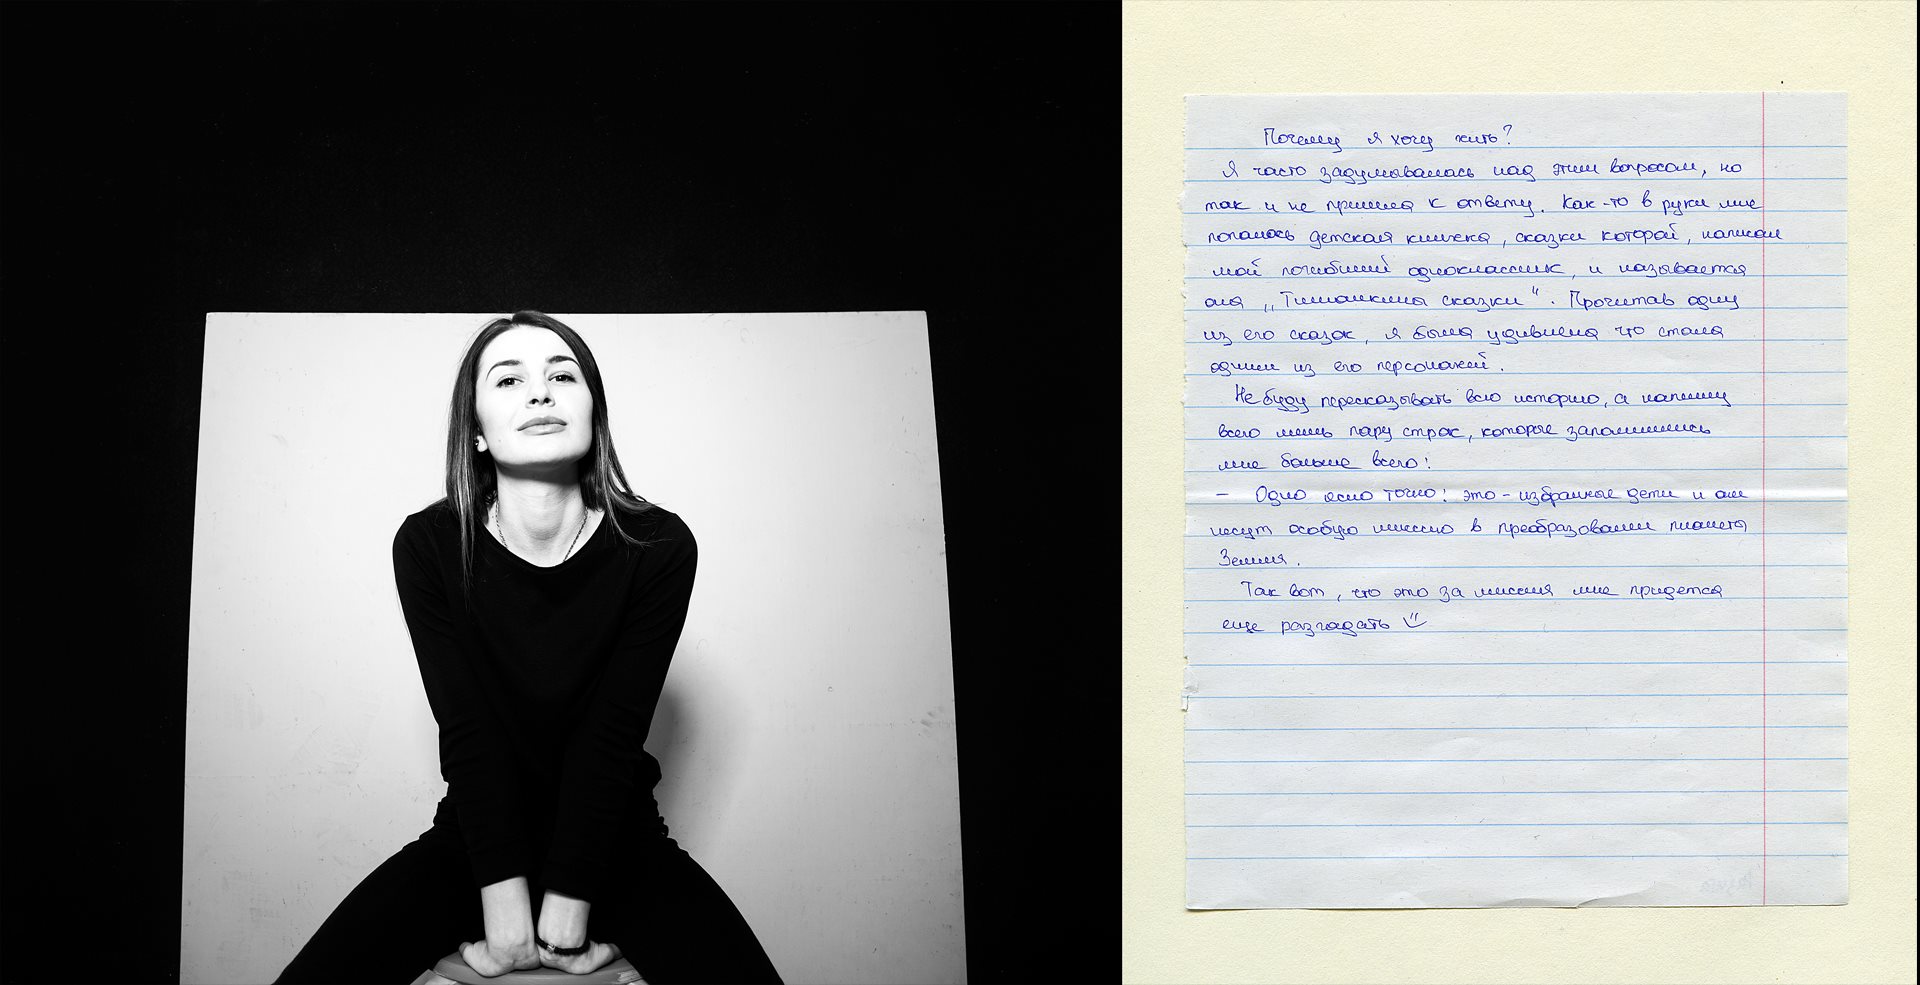 Почему я хочу жить?
Я часто задумывалась над этим вопросом, но
так и не пришла к ответу. Как-то в руки мне
попалась детская книжка, сказки которой, написал
мой погибший одноклассник, и называется
она „Тимошкины сказки“. Прочитав одну
из его сказок, я была удивлена что стала
одним из его персонажей.
Не буду пересказывать всю историю, а напишу
всего лишь пару строк, которые запомнились
мне больше всего:
– Одно ясно точно: это - избранные дети и они
несут особую миссию в преобразовании планеты
Земля.
Так вот, что это за миссия мне придется
еще разгадать